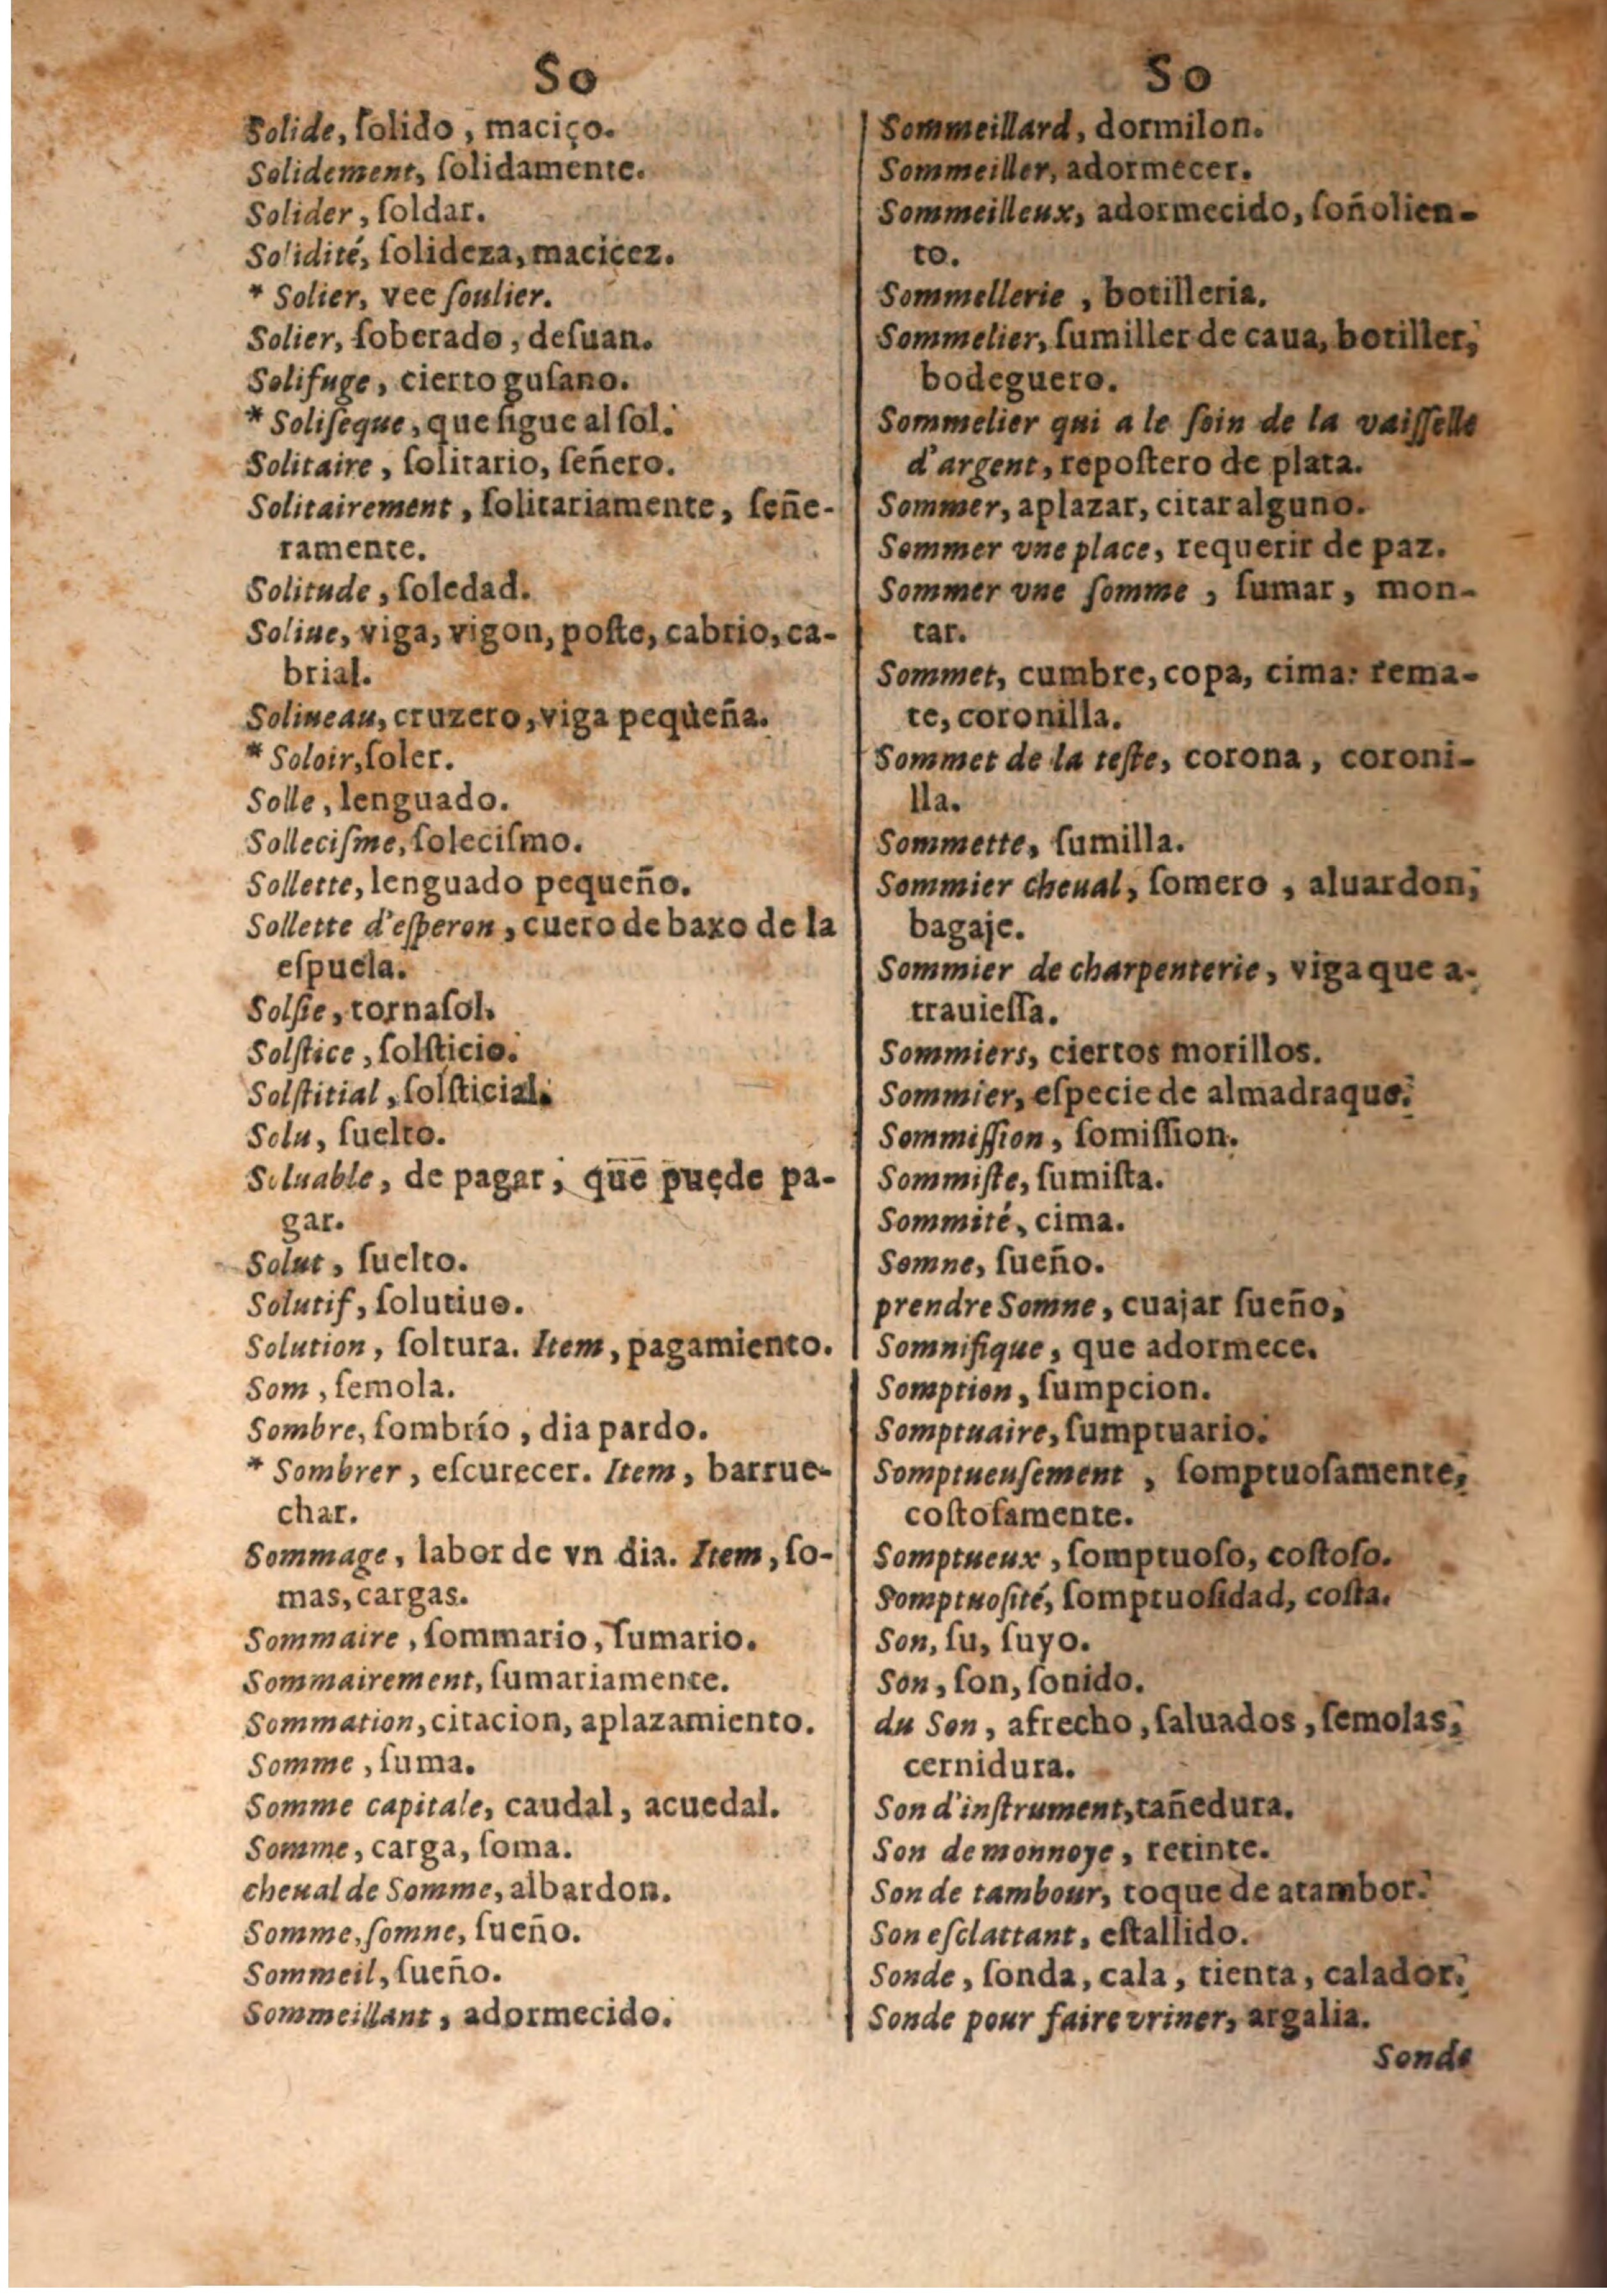 So
Solide, ſolido, maciço.
Solidement, ſolidamente.
Solider, ſoldar.
Solidité, ſolideza, macicez.
* Solier, vee ſoulier.
Solier, ſoberado, deſuan.
Solifuge, cierto guſano.
* Soliſeque, que ſigue al ſol.
Solitaire, ſolitario, ſeñero.
Solitairement, ſolitariamente, ſeñe-
ramente.
Solitude, ſoledad.
Soliue, viga, vigon, poſte, cabrio, ca-
brial.
Soliueau, cruzero, viga pequeña.
* Soloir, ſoler.
Solle, lenguado.
Solleciſme, ſoleciſmo.
Sollette, lenguado pequeño.
Sollette d'eſperon, cuero de baxo de la
eſpuela.
Solſie, tornaſol.
Solſtice, ſolſticio.
Solſtitial, ſolſticial.
Solu, ſuelto.
Soluable, de pagar, que puede pa-
gar.
Solut, ſuelto.
Solutif, ſolutiuo.
Solution, ſoltura. Item, pagamiento.
Som, ſemola.
Sombre, ſombrío, dia pardo.
* Sombrer, eſcurecer. Item, barrue-
char.
Sommage, labor de vn dia. Item, ſo-
mas, cargas.
Sommaire, ſommario, ſumario.
Sommairement, ſumariamente.
Sommation, citacion, aplazamiento.
Somme, ſuma.
Somme capitale, caudal, acuedal.
Somme, carga, ſoma.
cheual de Somme, albardon.
Somme, ſomne, ſueño.
Sommeil, ſueño.
Sommeillant, adormecido.
So
Sommeillard, dormilon.
Sommeiller, adormecer.
Sommeilleux, adormecido, ſoñolien-
to.
Sommellerie, botilleria.
Sommelier, ſumiller de caua, botiller,
bodeguero.
Sommelier qui a le ſoin de la vaiſſelle
d'argent, repoſtero de plata.
Sommer, aplazar, citar alguno.
Sommer vne place, requerir de paz.
Sommer vne ſomme, ſumar, mon-
tar.
Sommet, cumbre, copa, cima: rema-
te, coronilla.
Sommet de la teſte, corona, coroni-
lla.
Sommette, ſumilla.
Sommier cheual, ſomero, aluardon,
bagaje.
Sommier de charpenterie, viga que a-
trauieſſa.
Sommiers, ciertos morillos.
Sommier, eſpecie de almadraque.
Sommiſſion, ſomiſſion.
Sommiſte, ſumiſta.
Sommité, cima.
Somne, ſueño.
prendre Somne, cuajar ſueño,
Somnifique, que adormece.
Somption, ſumpcion.
Somptuaire, ſumptuario.
Somptueuſement, ſomptuoſamente,
coſtoſamente.
Somptueux, ſomptuoſo, coſtoſo.
Somptuoſité, ſomptuoſidad, coſta.
Son, ſu, ſuyo.
Son, ſon, ſonido.
du Son, afrecho, ſaluados, ſemolas,
cernidura.
Son d'inſtrument, tañedura.
Son de monnoye, retinte.
Son de tambour, toque de atambor.
Son eſclattant, eſtallido.
Sonde, ſonda, cala, tienta, calador.
Sonde pour faire vriner, argalia.
Sonde